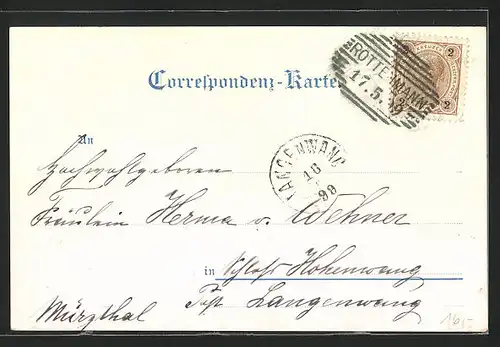 Correspondenz-Karte
ROTTENMANN
17.5.99
2 2
An
LANGENWANG
16
98
Hochwohlgeboren
Fräulein Herma v. Wehner
in Schloß Hohenwang
Post Langenwang
Mürzthal